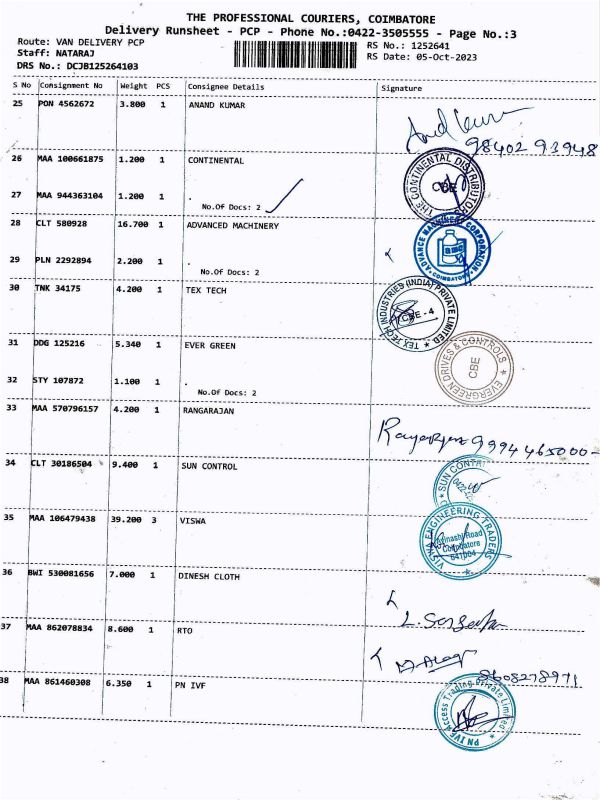 THE PROFESSIONAL COURIERS, COIMBATORE
Delivery Runsheet - PCP - Phone No.:0422-3505555 - Page No.:3
Route: VAN DELIVERY PCP
RS No.: 1252641
Staff: NATARAJ
RS Date: 05-Oct-2023
DRS No.: DCJB125264103
S No Consignment No Weight PCS Consignee Details Signature
25 PON 4562672 3.800 1 ANAND KUMAR
98402 93948
26 MAA 100661875 1.200 1 CONTINENTAL
THE CONTINENTAL DISTRIBUTORS
CBE
27 MAA 944363104 1.200 1 .
No.Of Docs: 2
28 CLT 580928 16.700 1 ADVANCED MACHINERY
ADVANCE MACHINERY CORPORATION
COIMBATORE
29 PLN 2292894 2.200 1 .
No.Of Docs: 2
30 TNK 34175 4.200 1 TEX TECH
TEX TECH INDUSTRIES (INDIA) PRIVATE LIMITED
CBE - 4
31 DDG 125216 5.340 1 EVER GREEN
EVERGREEN DRIVES & CONTROLS
CBE
32 STY 107872 1.100 1 .
No.Of Docs: 2
33 MAA 570796157 4.200 1 RANGARAJAN
9994465000-
34 CLT 30186504 9.400 1 SUN CONTROL
SUN CONTR
0422
35 MAA 106479438 39.200 3 VISWA
VISWA ENGINEERING TRADERS
Avinashi Road
Coimbatore
641004
36 BWI 530081656 7.000 1 DINESH CLOTH
37 MAA 862078834 8.600 1 RTO
8608278971
38 MAA 861460308 6.350 1 PN IVF
PN IVF Access Trading Private Limited